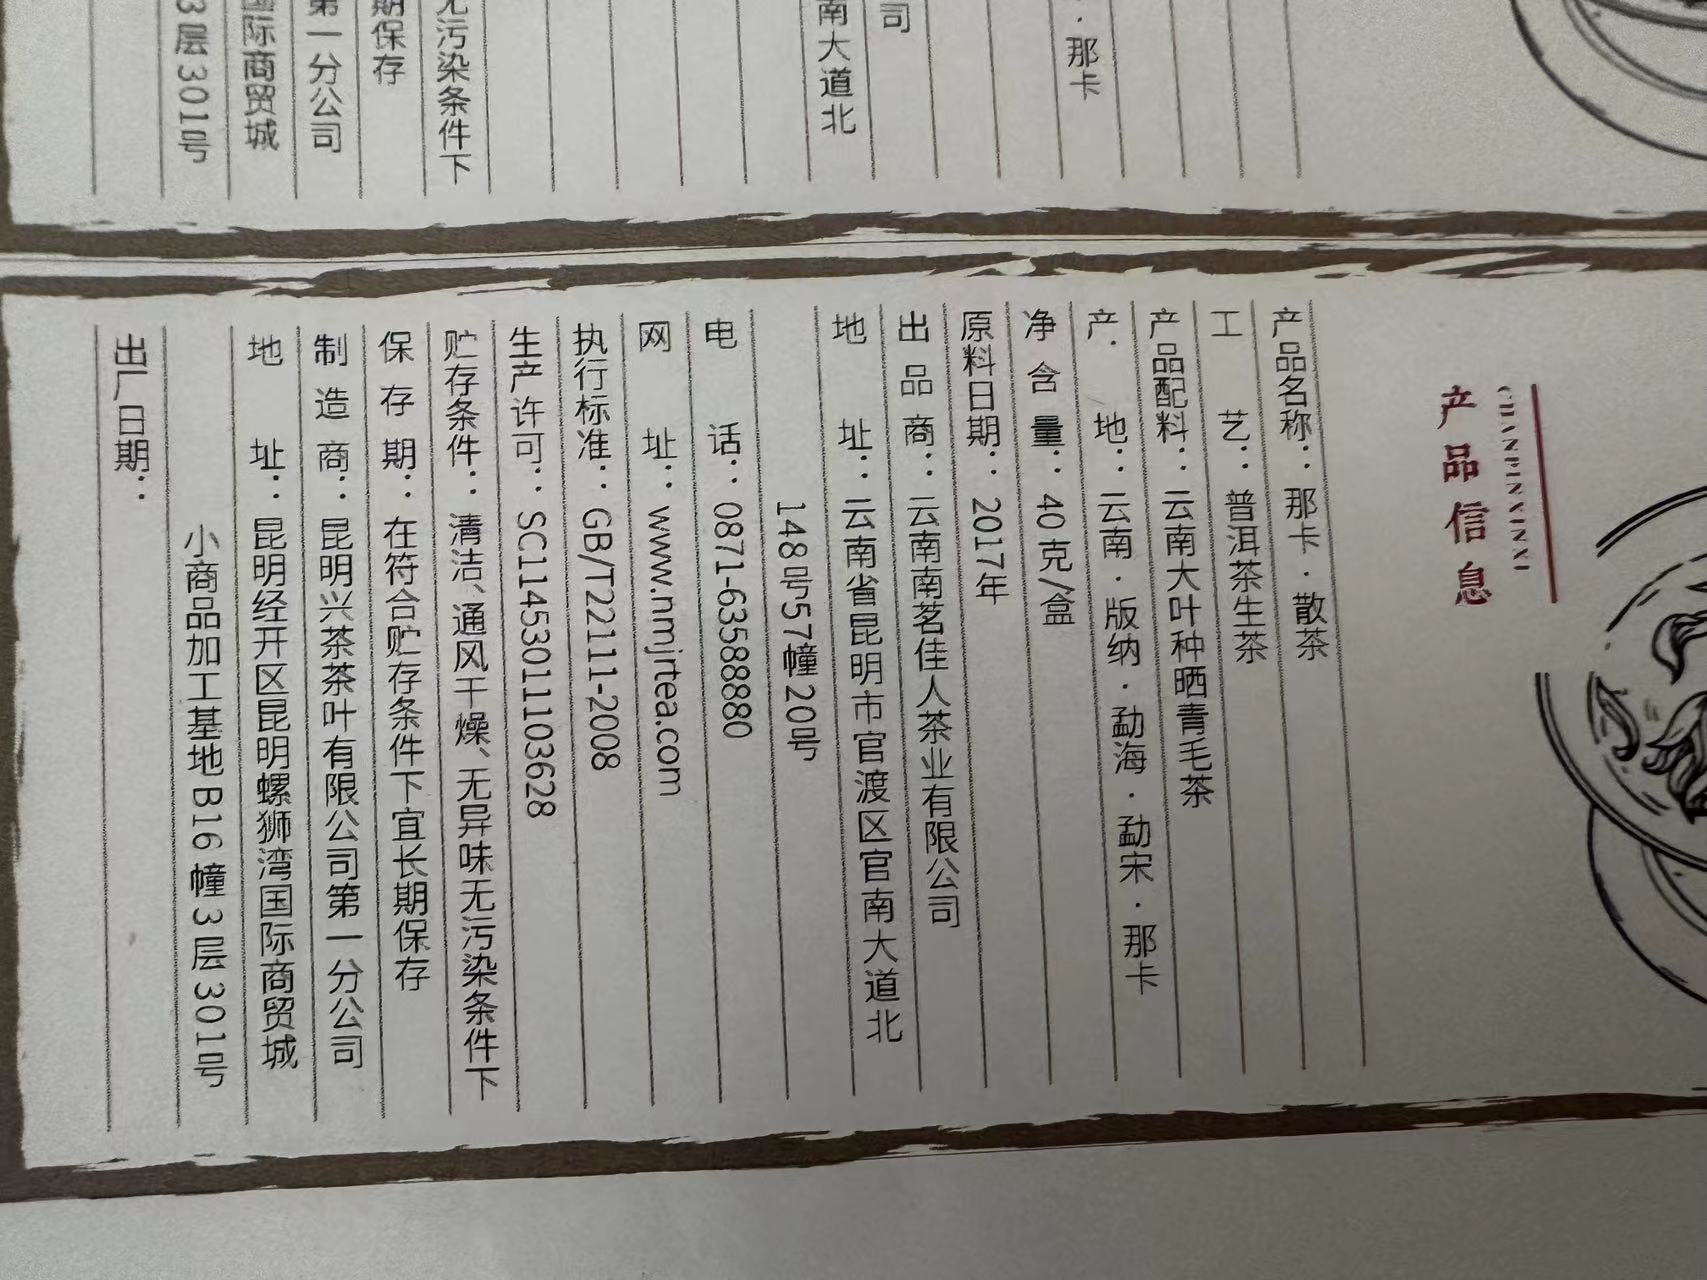 南大道北
司
·那卡
无污染条件下
期保存
第一分公司
国际商贸城
3层301号
产品信息
CHANPINXINXI
产品名称：那卡·散茶
工 艺：普洱茶生茶
产品配料：云南大叶种晒青毛茶
产 地：云南·版纳·勐海·勐宋·那卡
净 含 量：40克/盒
原料日期：2017年
出 品 商：云南南茗佳人茶业有限公司
地 址：云南省昆明市官渡区官南大道北
148号57幢20号
电 话：0871-63588880
网 址：www.nmjrtea.com
执行标准：GB/T22111-2008
生产许可：SC11453011103628
贮存条件：清洁、通风干燥、无异味无污染条件下
保 存 期：在符合贮存条件下宜长期保存
制 造 商：昆明兴茶茶叶有限公司第一分公司
地 址：昆明经开区昆明螺狮湾国际商贸城
小商品加工基地B16幢3层301号
出厂日期：